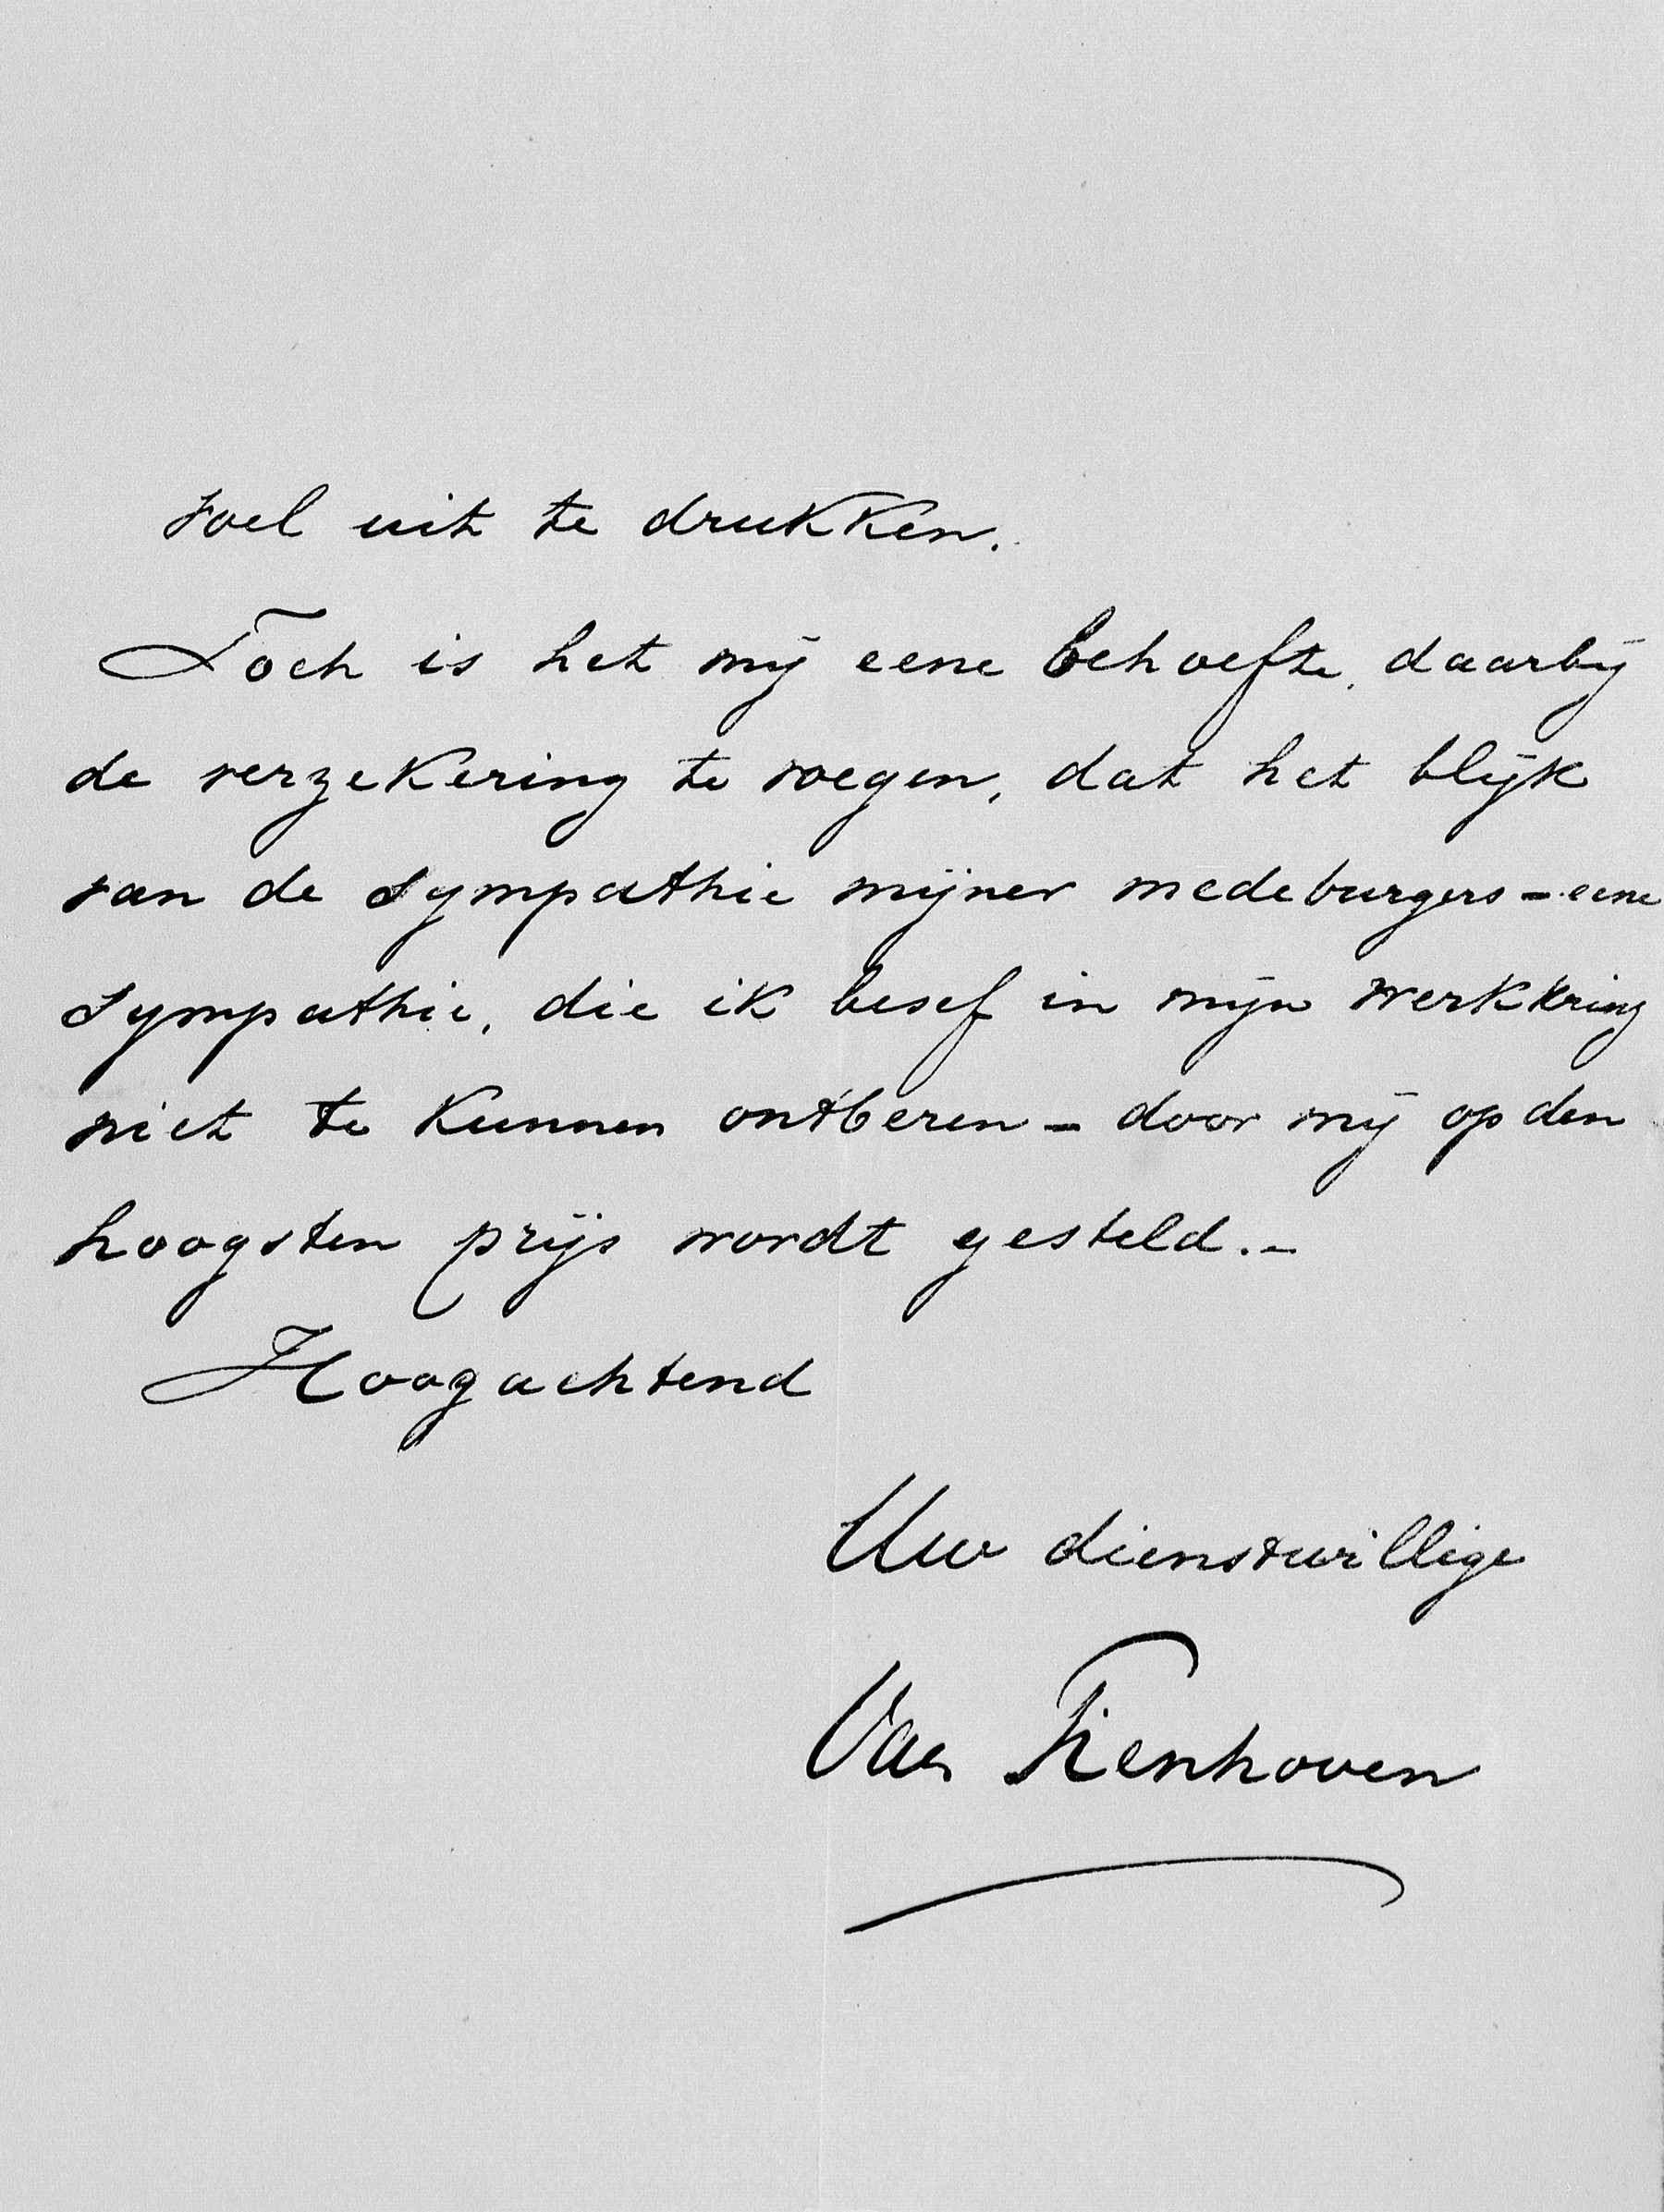 voel uit te drukken.
Toch is het mij eene behoefte, daarbij
de verzekering te voegen, dat het blijk
van de sympathie mijner medeburgers – eene
sympathie, die ik besef in mijn werkkring
niet te kunnen ontberen – door mij op den
hoogsten prijs wordt gesteld. –
Hoogachtend
Uw dienstwillige
Van Tienhoven